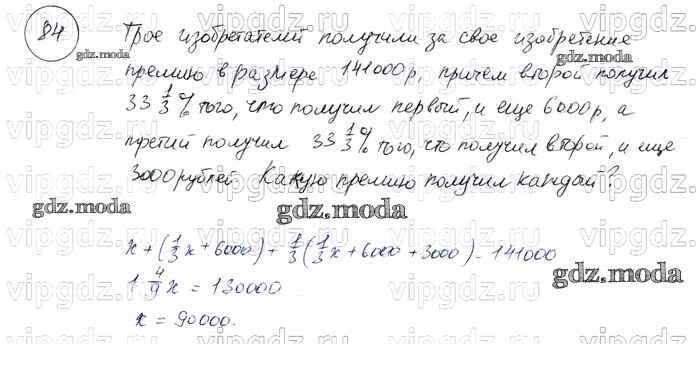 84
Трое изобретателей получили за свое изобретение
премию в размере 141000 р, причем второй получил
33 1/3 % того, что получил первый, и еще 6000 р, а
третий получил 33 1/3 % того, что получил второй, и еще
3000 рублей. Какую премию получил каждый?
x + (1/3 x + 6000) + 1/3 (1/3 x + 6000 + 3000) - 141000
1 4/9 x = 130000
x = 90000.
gdz.moda
gdz.moda
gdz.moda
gdz.moda
gdz.moda
vipgdz.moda